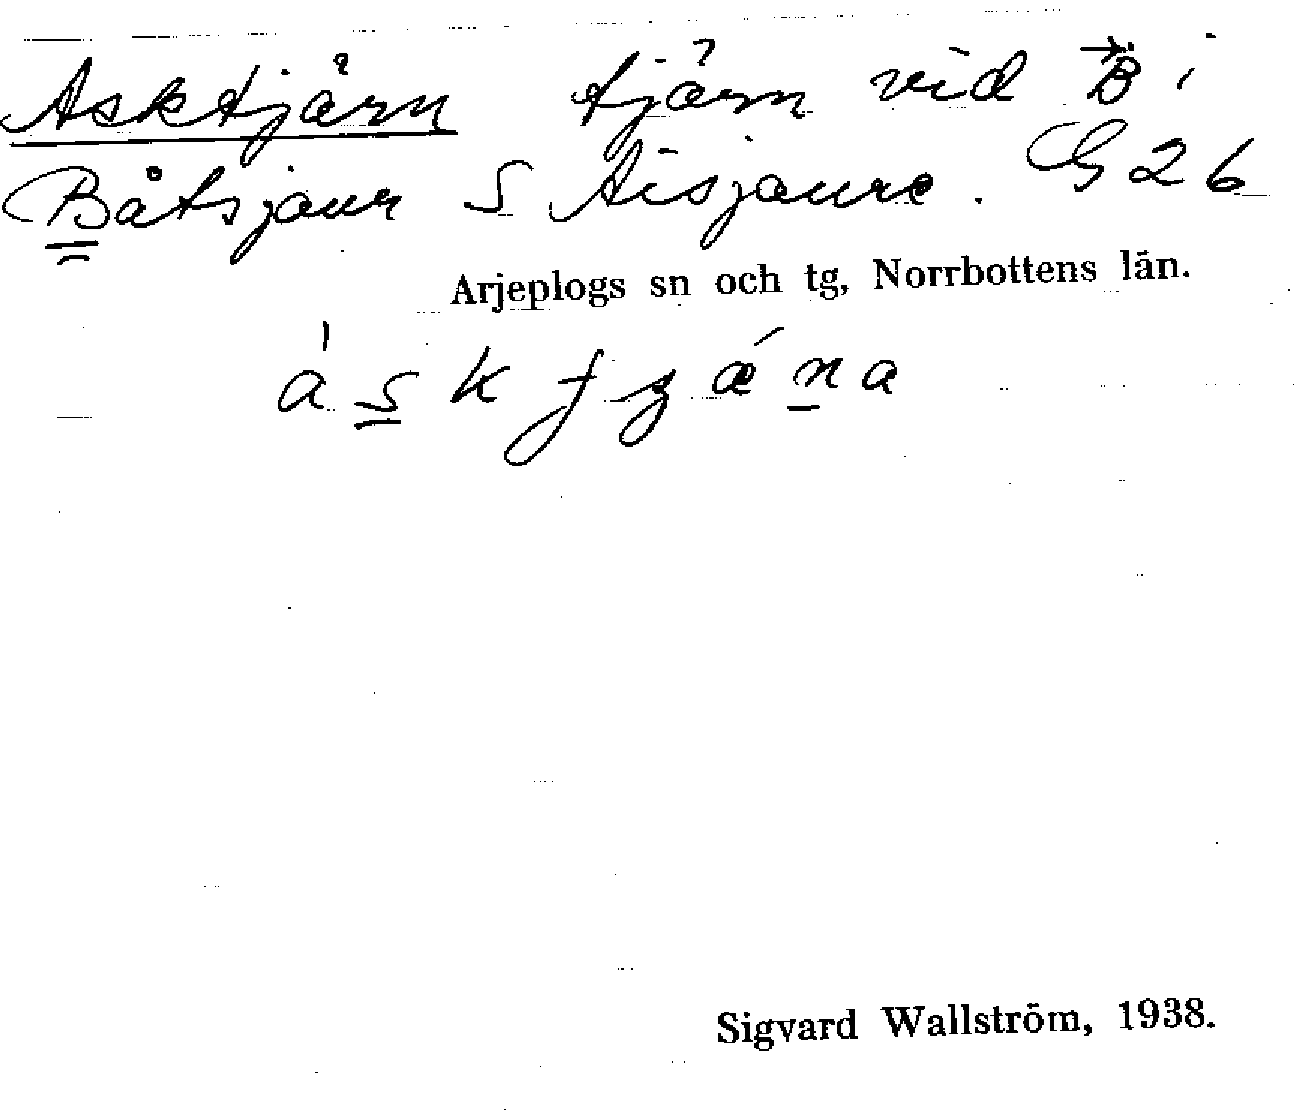 Asktjärn tjärn vid B i
Båtsjaur S Aisjaure. G26
Arjeplogs sn och tg, Norrbottens län.
Sigvard Wallström, 1938.